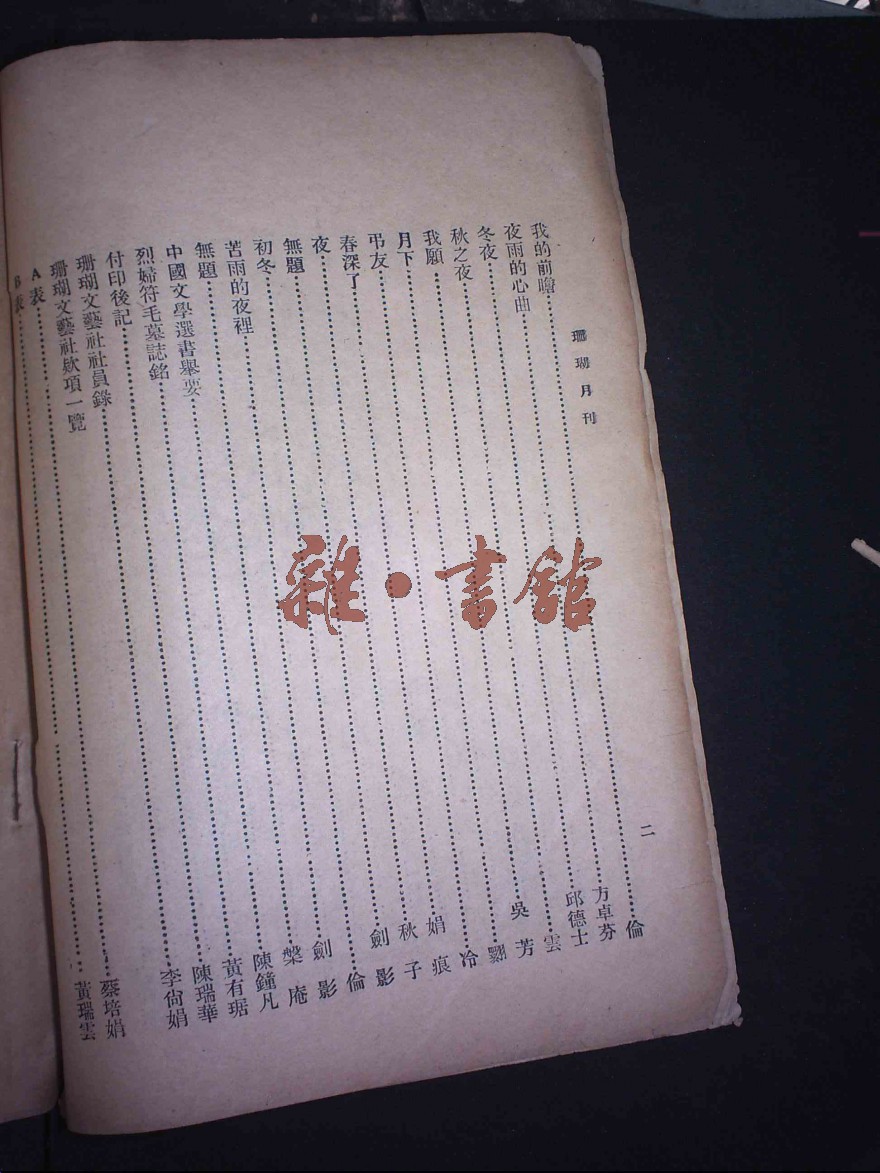 珊瑚月刊
二
我的前瞻……倫
夜雨的心曲……方卓芬
冬夜……邱德士
秋之夜……雲
我願……吳芳
月下……
弔友……冷
春深了……娟痕
夜……秋子
無題……劍影
初冬……倫
苦雨的夜裡……劍影
無題……槃庵
中國文學選書舉要……陳鐘凡
烈婦符毛墓誌銘……黃有琚
付印後記……陳瑞華
珊瑚文藝社社員錄……李尙娟
珊瑚文藝社欵項一覽
A表……蔡培娟
B表……黃瑞雲
雜·書館